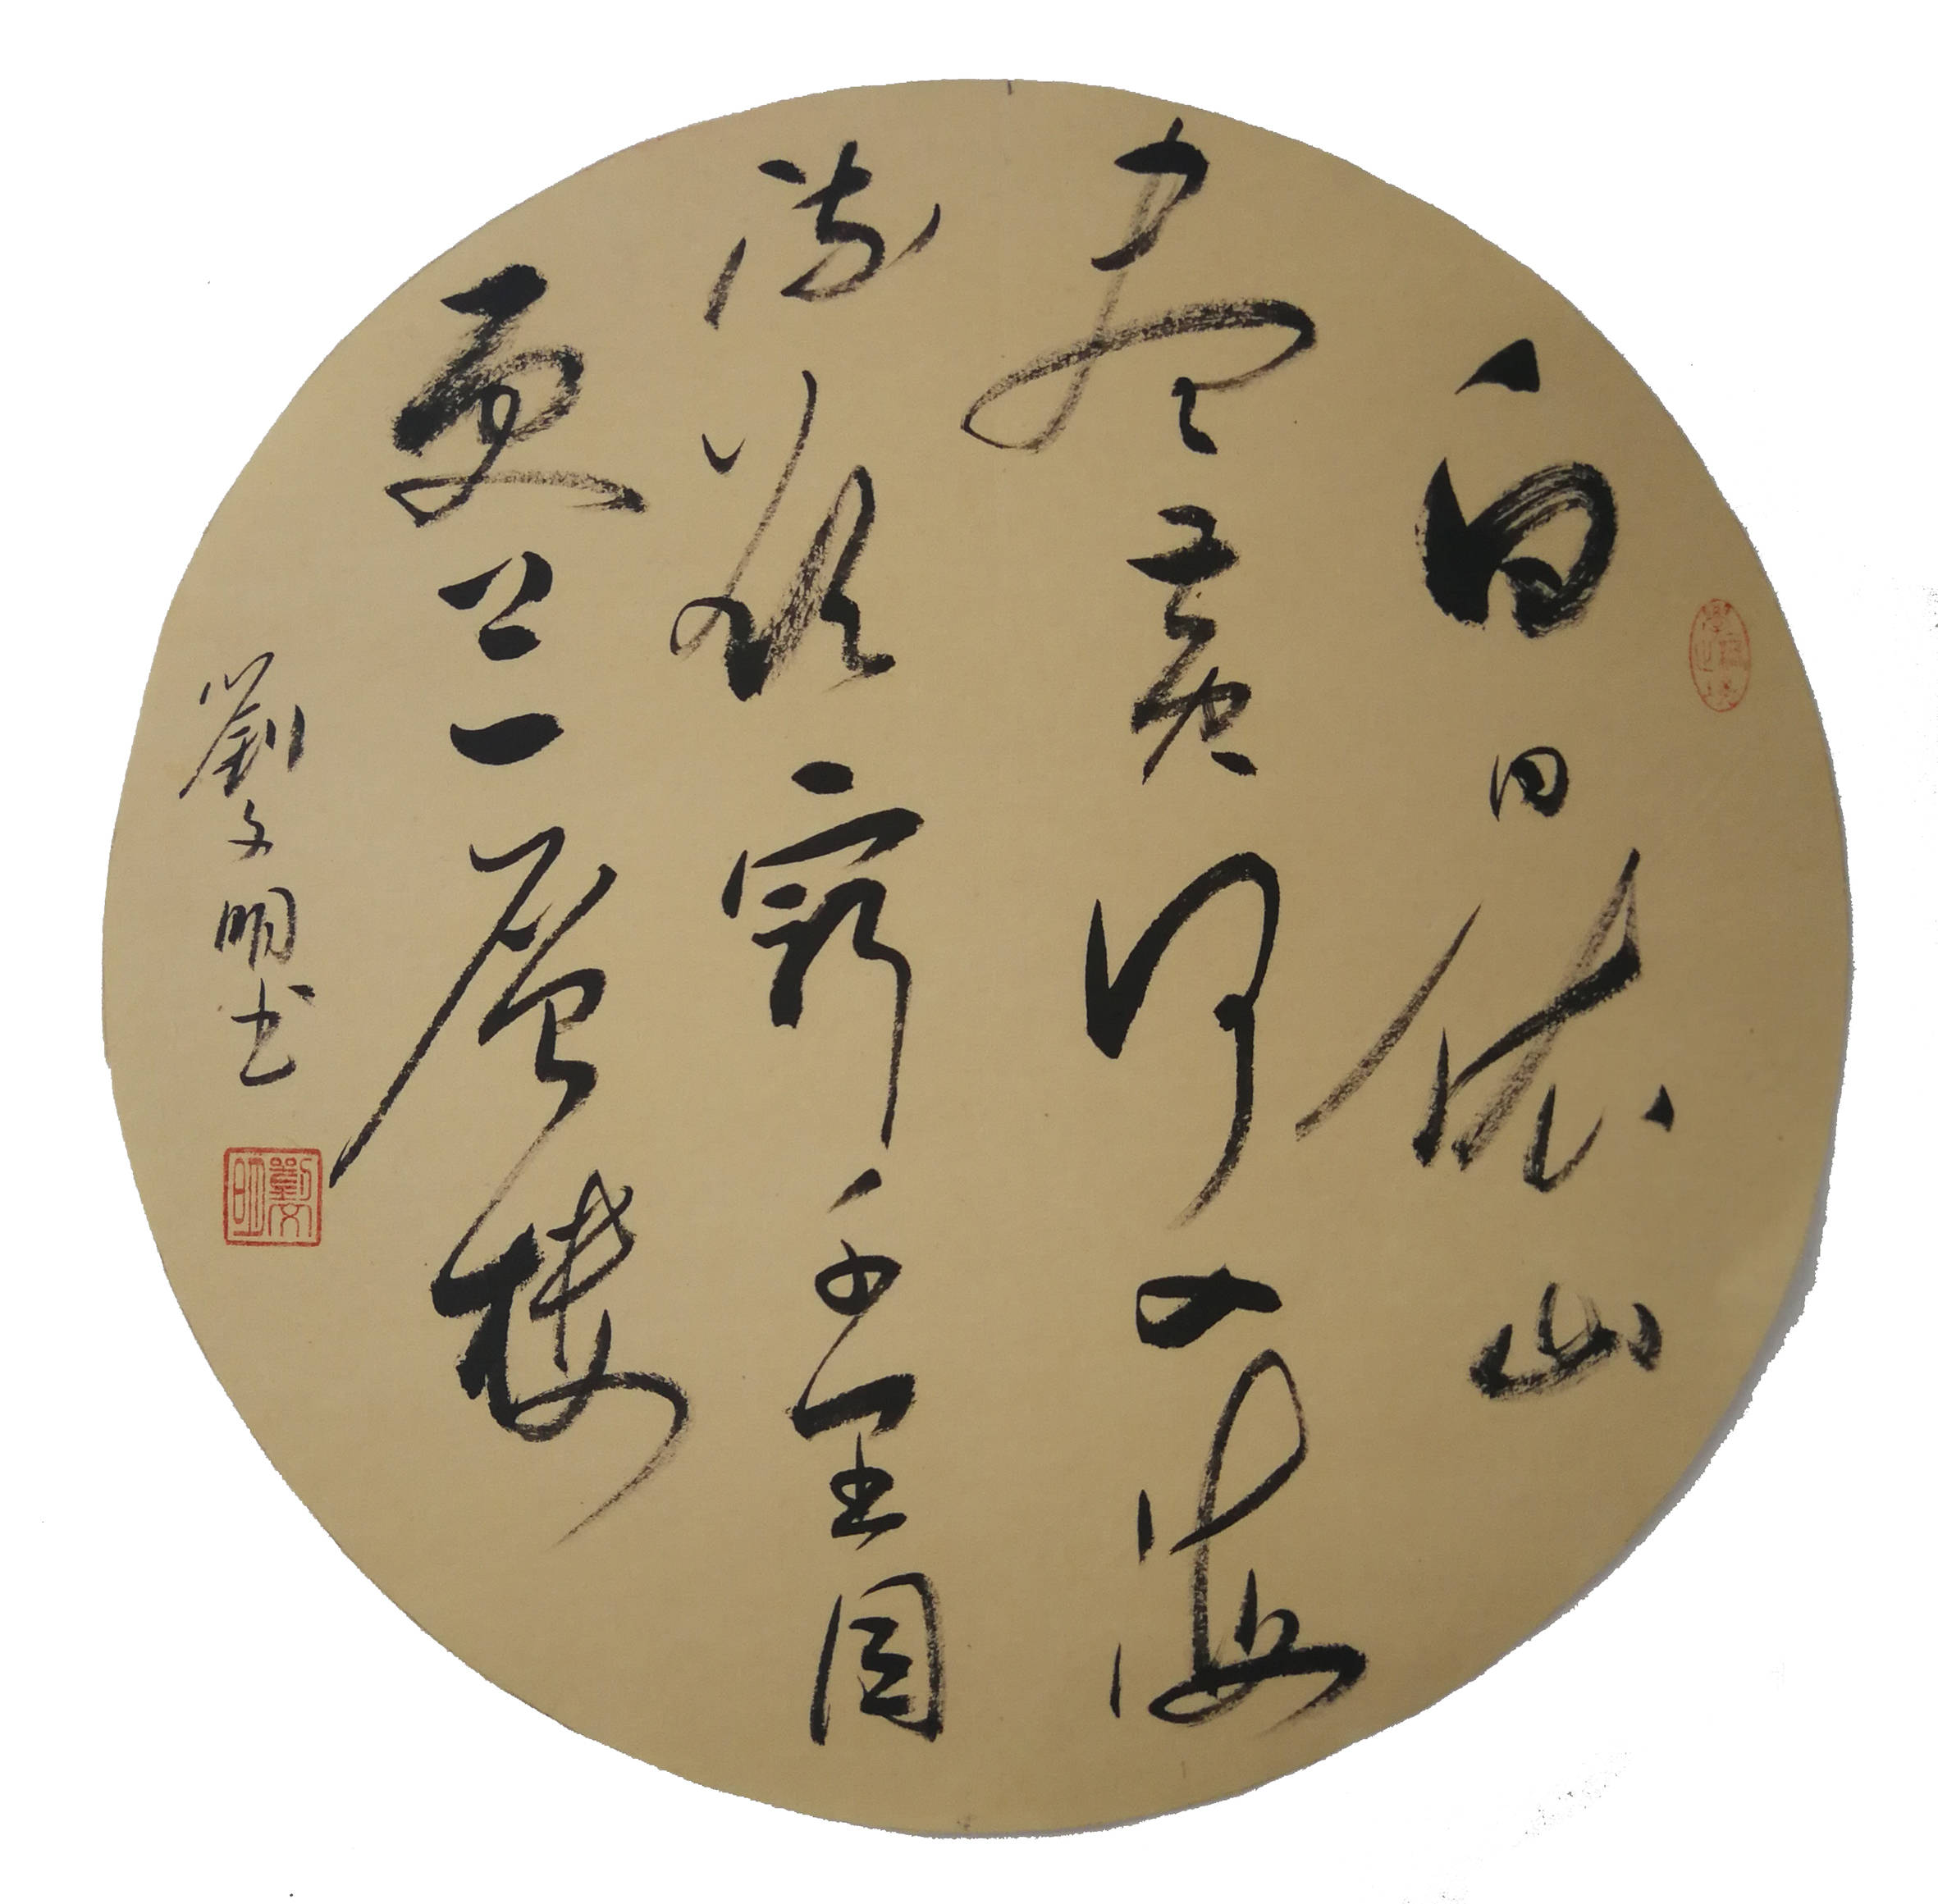 白日依山
盡黃河入海
流欲窮千里目
更上一层楼
劉文明书
劉文明